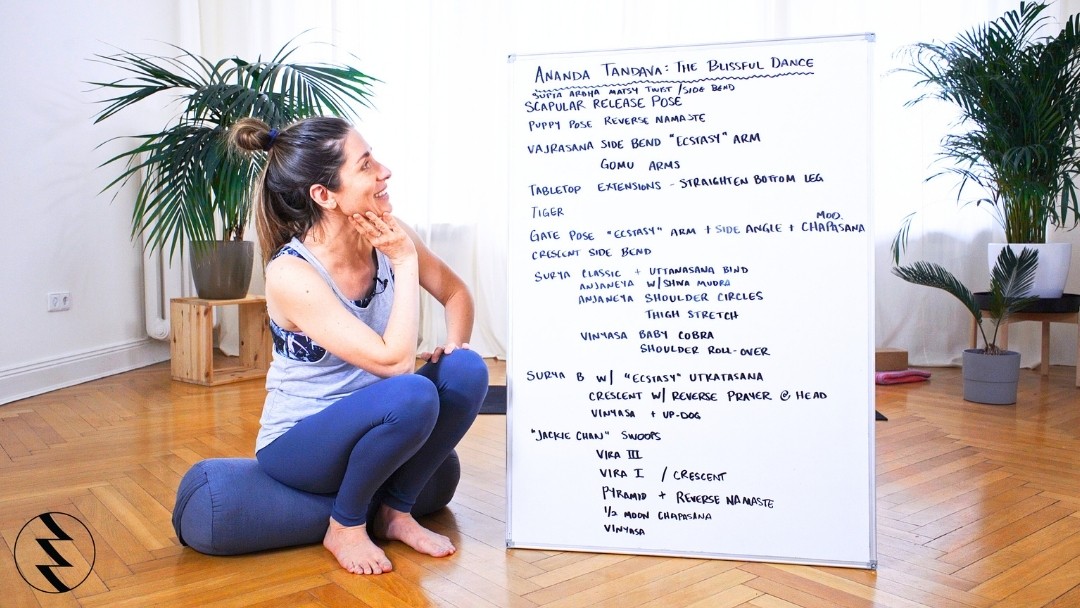 ANANDA TANDAVA: THE BLISSFUL DANCE
SUPTA ARDHA MATSY TWIST / SIDE BEND
SCAPULAR RELEASE POSE
PUPPY POSE REVERSE NAMASTE
VAJRASANA SIDE BEND "ECSTASY" ARM
GOMU ARMS
TABLETOP EXTENSIONS - STRAIGHTEN BOTTOM LEG
TIGER
MOD.
GATE POSE "ECSTASY" ARM + SIDE ANGLE + CHAPASANA
CRESCENT SIDE BEND
SURYA CLASSIC + UTTANASANA BIND
ANJANEYA W/SHIVA MUDRA
ANJANEYA SHOULDER CIRCLES
THIGH STRETCH
VINYASA BABY COBRA
SHOULDER ROLL-OVER
SURYA B W/ "ECSTASY" UTKATASANA
CRESCENT W/ REVERSE PRAYER @ HEAD
VINYASA + UP-DOG
"JACKIE CHAN" SWOOPS
VIRA III
VIRA I / CRESCENT
PYRAMID + REVERSE NAMASTE
1/2 MOON CHAPASANA
VINYASA